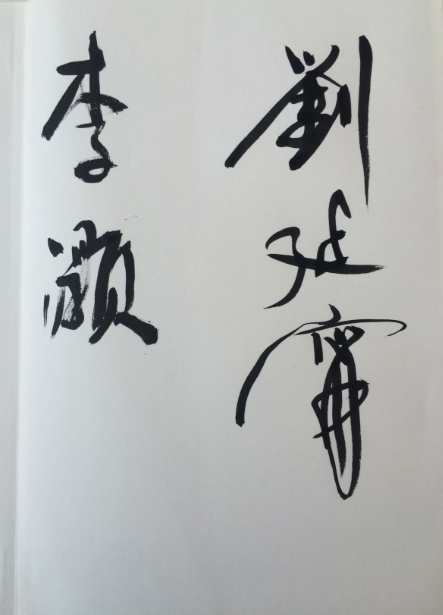 劉延寧
李灝